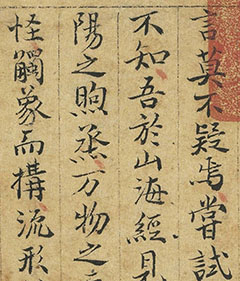 言莫不疑焉嘗試
不知吾於山海經見
陽之煦烝万物之
怪觸象而構流形